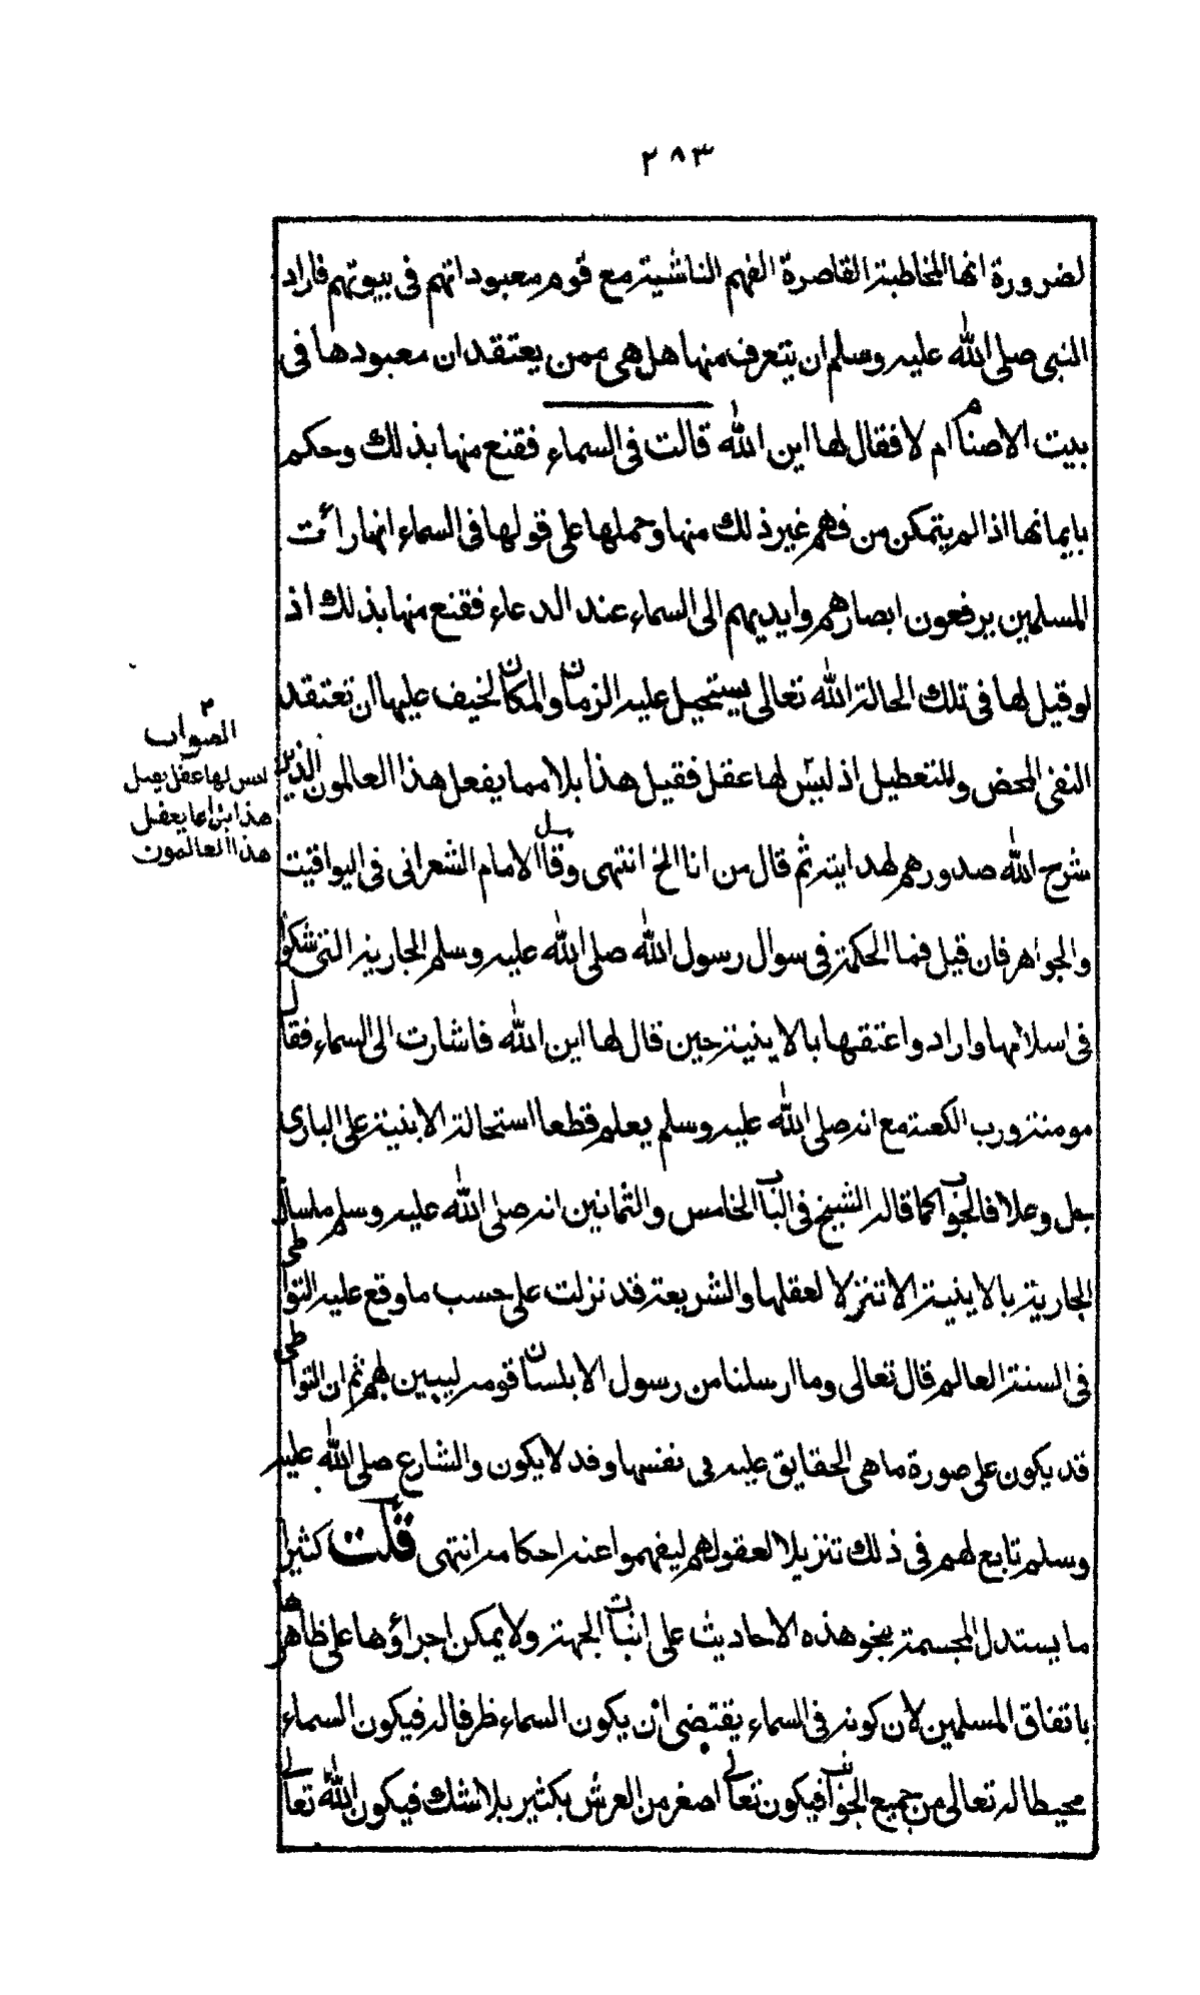 ٢٨٣
لضرورة انها المخاطبة القاصرة الفهم الناشية مع قوم معبوداتهم فى بيوتهم فاراد
النبى صلى الله عليه وسلم ان يتعرف منها هل هى ممن يعتقد ان معبودها فى
بيت الاصنام ام لا فقال لها اين الله قالت فى السماء فقنع منها بذلك وحكم
بايمانها اذ لم يتمكن من فهم غير ذلك منها وحملها على قولها فى السماء انها رأت
المسلمين يرفعون ابصارهم وايديهم الى السماء عند الدعاء فقنع منها بذلك اذ
لو قيل لها فى تلك الحالة الله تعالى يستحيل عليه الزمان والمكان لخيف عليها ان تعتقد
النفى المحض والتعطيل اذ ليس لها عقل فقيل هذا بلا مما يفعل هذا العالمون الذين
شرح الله صدورهم لهدايته ثم قال من انا الخ انتهى وقال الامام الشعرانى فى اليواقيت
والجواهر فان قيل فما الحكمة فى سوال رسول الله صلى الله عليه وسلم الجارية التى شكوا
فى اسلامها واراد واعتقها بالاينية حين قال لها اين الله فاشارت الى السماء فقال
مومنة ورب الكعبة مع انه صلى الله عليه وسلم يعلم قطعا استحالة الاينية على البارى
جل وعلا فالجواب كما قاله الشيخ فى الباب الخامس والثمانين انه صلى الله عليه وسلم ما سأل
الجارية بالاينية الا تنزلا لعقلها والشريعة قد نزلت على حسب ما وقع عليه التواطى
فى السنة العالم قال تعالى وما ارسلنا من رسول الا بلسان قومه ليبين لهم ثم ان التواطى
قد يكون على صورة ما هى الحقايق عليه فى نفسها وقد لا يكون والشارع صلى الله عليه
وسلم تابع لهم فى ذلك تنزيلا لعقولهم ليفهموا عنه احكامه انتهى قلت كثيرا
ما يستدل المجسمة بنحو هذه الاحاديث على اثبات الجهة ولا يمكن اجراؤها على ظاهرها
باتفاق المسلمين لان كونه فى السماء يقتضى ان يكون السماء ظرفا له فيكون السماء
محيطا له تعالى من جميع الجوانب فيكون تعالى اصغر من العرش بكثير بلا شك فيكون الله تعالى
٢
الصواب
ليس لها عقل يصل
هذا بل انما يعقل
هذا العالمون